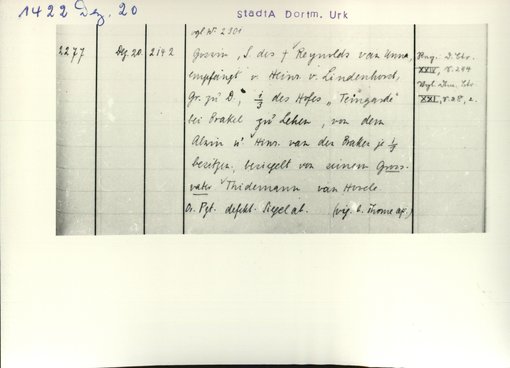 1422 Dez. 20
StadtA Dortm. Urk
vgl. Nr. 2301
2277 Dez. 20. 2142 S. des † Reynolds van Unna,
empfängt v. Heinr. v. Lindenhorst,
Gr. zu D., 1/3 des Hofes „Teingarde"
bei Brakel zu Lehen, von dem
Alwin u. Heinr. van den Braken je 1/3
besitzen, besiegelt von seinem Gross-
vater Thidemann van Hovele
Or. Pgt. defekt. Siegel ab.
XXIV, S. 284
XXI, S. 28, 2.